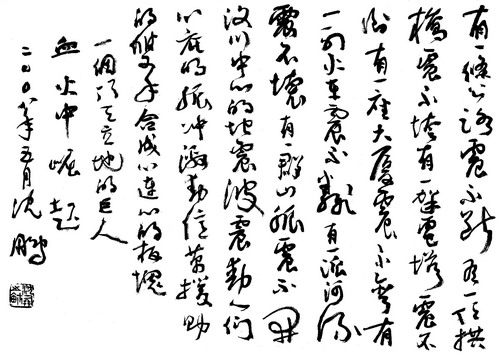 有一條公路震不斷有一座拱
橋震不垮有一電塔震不
倒有一座大廈震不彎有
一列火車震不翻有一派河流
震不壞有一群山脈震不開
汶川中心的地震波震動人们
心底的脈沖激動億萬援助
的雙手合成心連心的板塊
一個頂天立地的巨人
血火中崛起
二〇〇八年五月沈鵬